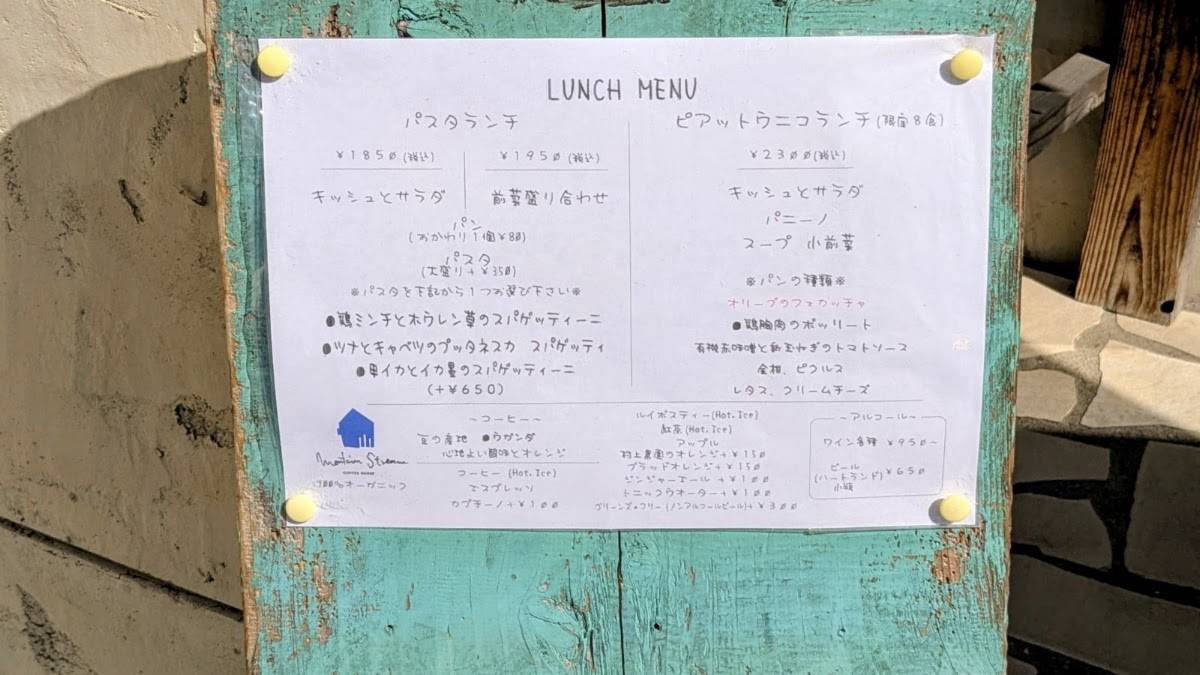 LUNCH MENU
パスタランチ
¥1850(税込)
¥1950(税込)
キッシュとサラダ
前菜盛り合わせ
パン
(おかわり1個¥80)
パスタ
(大盛り+¥350)
※パスタを下記から1つお選び下さい※
●鶏ミンチとホウレン草のスパゲッティーニ
●ツナとキャベツのプッタネスカ スパゲッティ
●甲イカとイカ墨のスパゲッティーニ
(+¥650)
ピアットウニコランチ(限定8食)
¥2300(税込)
キッシュとサラダ
パニーノ
スープ 小前菜
※パンの種類※
オリーブのフォカッチャ
●鶏胸肉のボッリート
有機赤味噌と新玉ねぎのトマトソース
金柑、ピクルス
レタス、クリームチーズ
Mountain Stream
COFFEE HOUSE
100%オーガニック
～コーヒー～
豆の産地 ●ウガンダ
心地よい酸味とオレンジ
コーヒー(Hot.Ice)
エスプレッソ
カプチーノ+¥100
ルイボスティー(Hot.Ice)
紅茶(Hot.Ice)
アップル
村上農園のオレンジ+¥150
ブラッドオレンジ+¥150
ジンジャーエール +¥100
トニックウオーター+¥100
グリーンズ・フリー(ノンアルコールビール)+¥300
～アルコール～
ワイン各種 ¥950～
ビール
(ハートランド) ¥650
小瓶